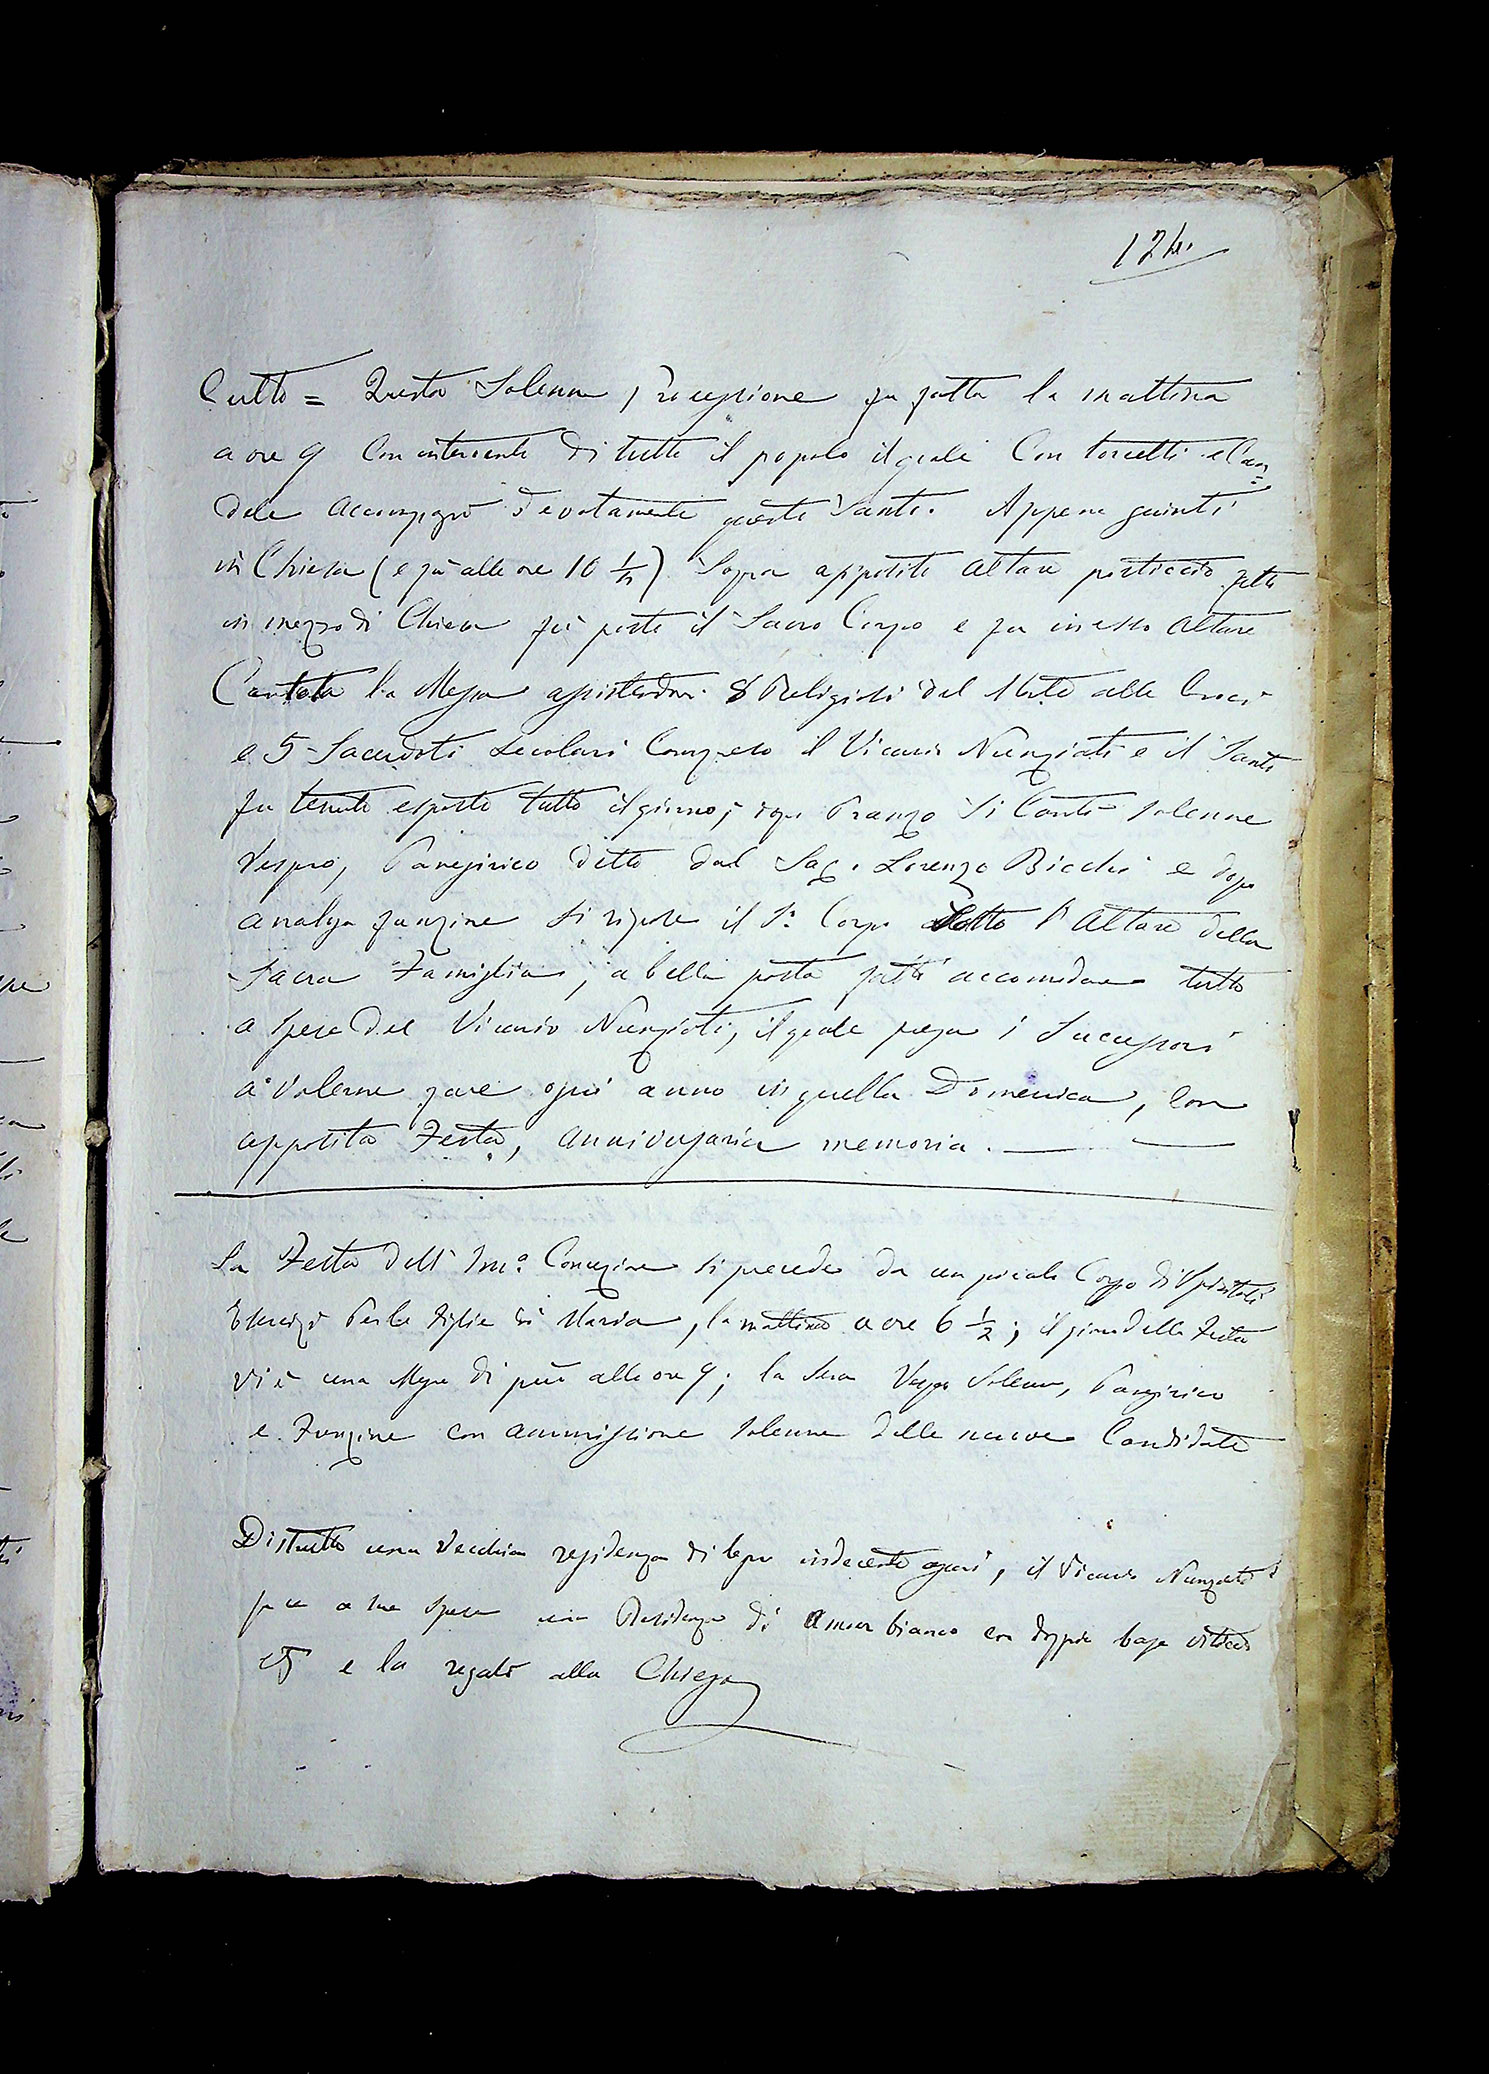 124.
Culto = Questa Solenne Processione fu fatta la mattina
a ore 9 Con intervento di tutto il popolo il quale Con torcetti e Can=
dele accompagnò devotamente questo Santo. Appena giunti
in Chiesa (e fu alle ore 10 ½) Sopra apposito altare posticcio fatto
in mezzo di Chiesa fu posto il Sacro Corpo e fu in esso altare
Cantata la Messa assistendovi 8 Religiosi del Monte alle Croci
e 5 Sacerdoti Secolari Compreso il Vicario Nunziati e il Santo
fu tenuto esposto tutto il giorno; dopo Pranzo Si Cantò Solenne
Vespro, Panegirico detto dal Sac. Lorenzo Bicchi e dopo
analoga funzione Si ripose il S. Corpo Sotto l'Altare della
Sacra Famiglia, a bella posta fatto accomodare tutto
a spese del Vicario Nunziati, il quale prega i Successori
a volerne fare ogni anno in quella Domenica, Con
apposita Festa, anniversaria memoria.
La Festa dell' Imª Concezione Si precede da un piccolo Corso di Spirituali
Esercizi Per le Figlie di Maria, la mattina a ore 6 ½; il giorno della Festa
vi è una Messa di più alle ore 9; la Sera Vespro Solenne, Panegirico
e Funzione con ammissione Solenne delle nuove Candidate
Distrutto una Vecchia residenza di legno indecente, il Vicario Nunziati
fece a sue Spese una Residenza di bianco con doppia base
e la regalò alla Chiesa